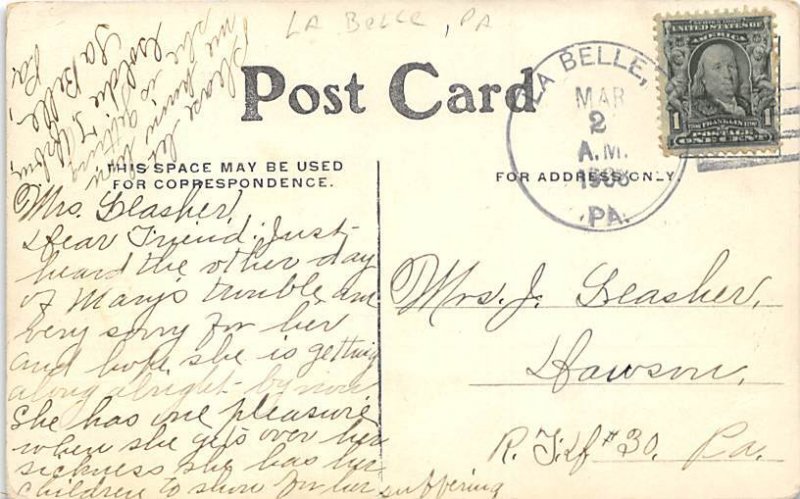 LA BELLE, PA
POST CARD
THIS SPACE MAY BE USED
FOR CORRESPONDENCE.
FOR ADDRESS ONLY.
LA BELLE,
MAR
2
A.M.
PA.
SERIES 1902
UNITED STATES OF
AMERICA
1 FRANKLIN 1
POSTAGE
ONE CENT
Mrs. Leasher,
Dear Friend. Just
heard the other day
of Marys trouble, am
very sorry for her
and hope she is getting
along alright by now
She has one pleasure
when she gets over her
sickness she has her
children to show for her suffering
Please let
me know how
she is getting
Goldie
La Belle,
Pa.
Mrs. J. Leasher,
Dawson,
R. F. D. #30. Pa.